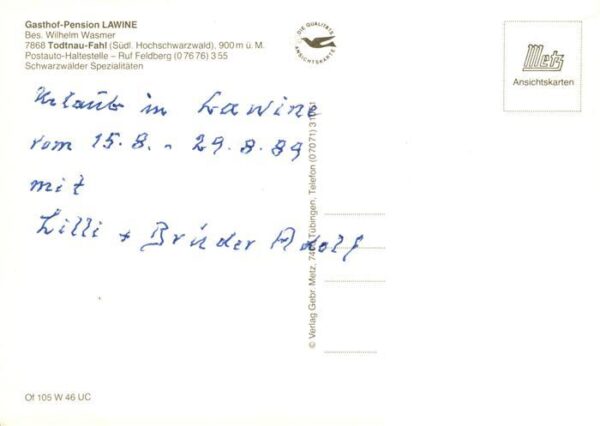 Gasthof-Pension LAWINE
Bes. Wilhelm Wasmer
7868 Todtnau-Fahl (Südl. Hochschwarzwald), 900 m ü. M.
Postauto-Haltestelle – Ruf Feldberg (07676) 355
Schwarzwälder Spezialitäten
DIE QUALITÄTS
ANSICHTSKARTE
Metz
Ansichtskarten
Urlaub in Lawine
vom 15.8. - 29.8.89
mit
Lilli + Brüder Adolf
© Verlag Gebr. Metz, Tübingen, Telefon (07071)
Of 105 W 46 UC